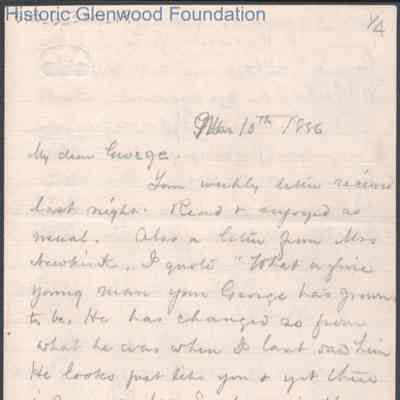 Historic Glenwood Foundation
1/4
Mar 10th 1886
My dear George.
Your weekly letter received
last night. Read & enjoyed as
usual. Also a letter from Mrs
Newkirk. I quote "What a fine
young man your George has grown
to be. He has changed so from
what he was when I last saw him
He looks just like you & yet there